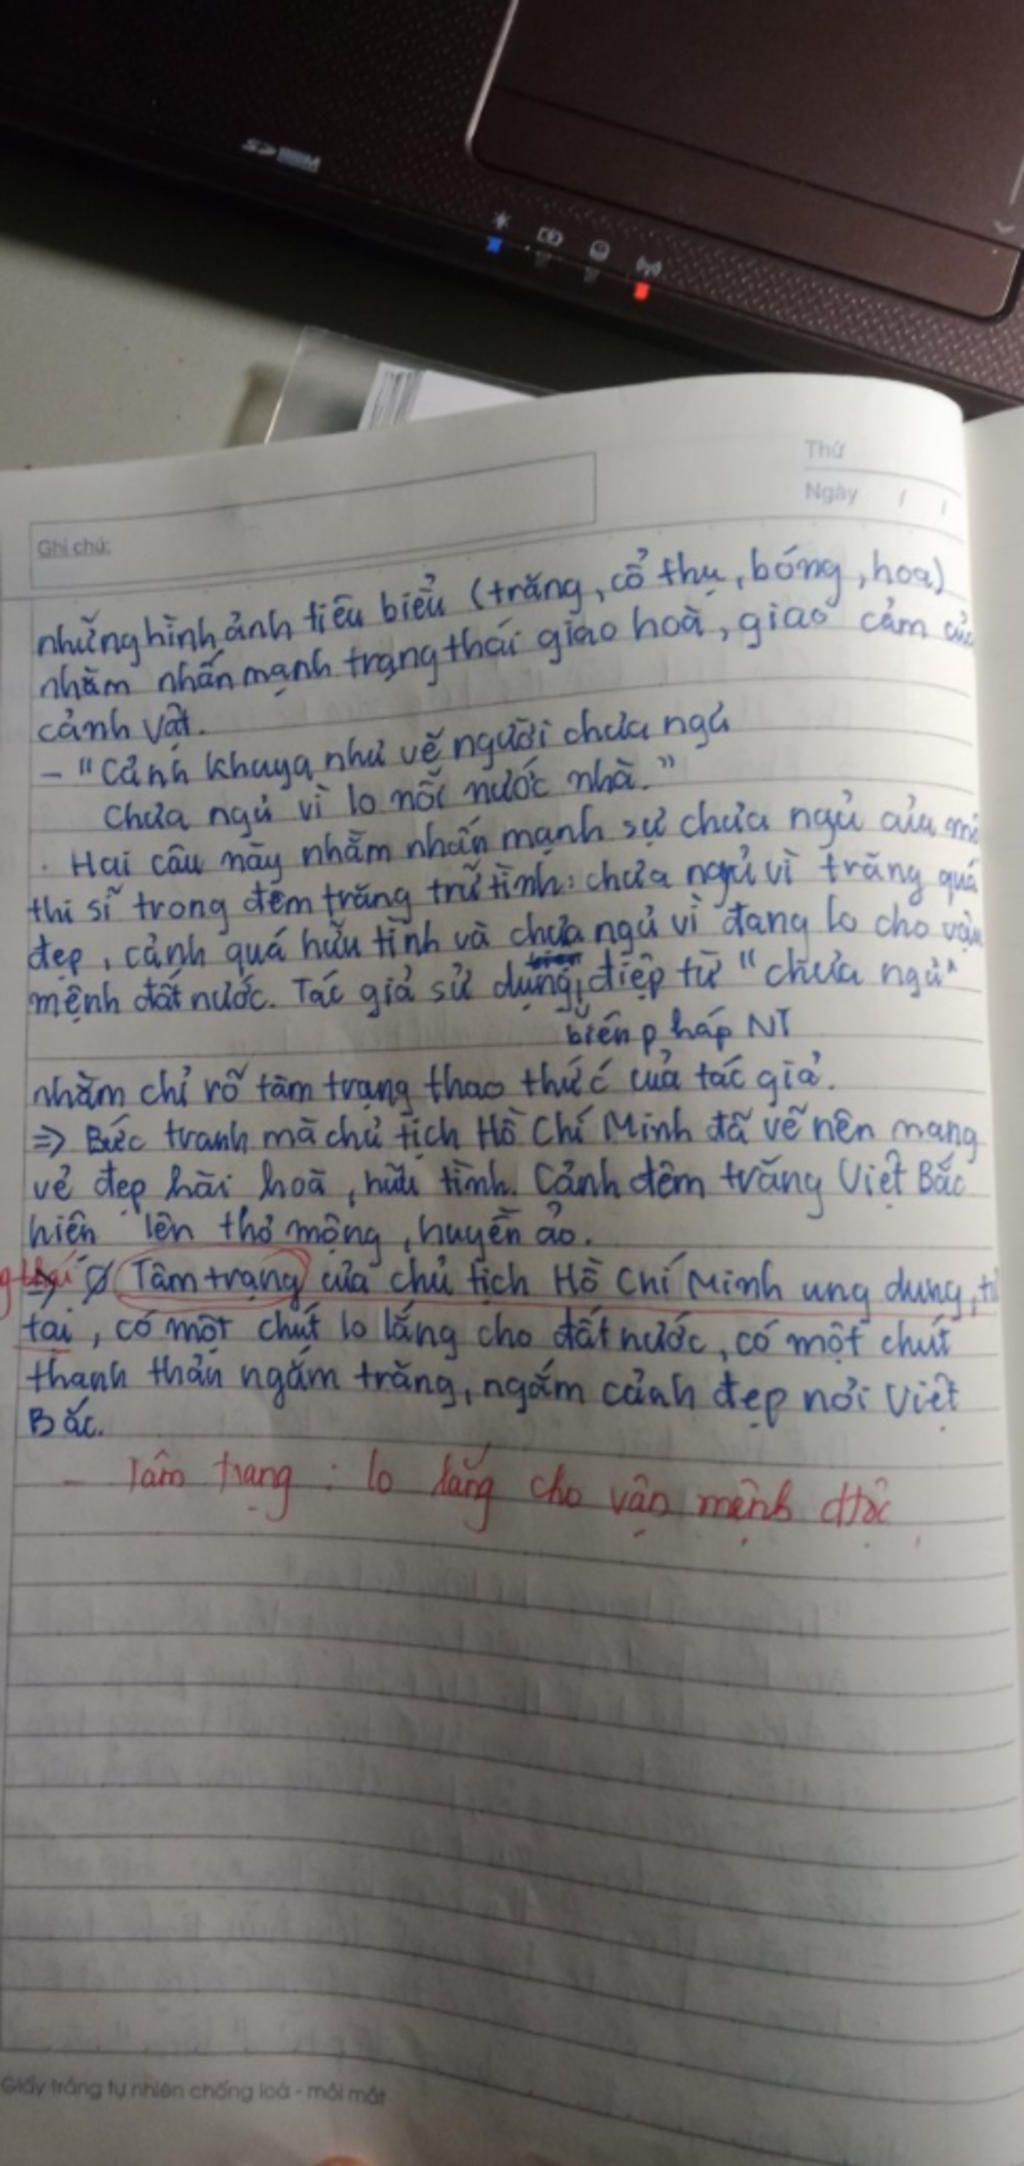 Thứ
Ngày / /
Ghi chú:
những hình ảnh tiêu biểu (trăng, cổ thụ, bóng, hoa)
nhằm nhấn mạnh trạng thái giao hoà, giao cảm của
cảnh vật.
- "Cảnh khuya như vẽ người chưa ngủ
Chưa ngủ vì lo nỗi nước nhà."
. Hai câu này nhằm nhấn mạnh sự chưa ngủ của
thi sĩ trong đêm trăng trữ tình: chưa ngủ vì trăng quá
đẹp, cảnh quá hữu tình và chưa ngủ vì đang lo cho vận
mệnh đất nước. Tác giả sử dụng điệp từ "chưa ngủ"
biện pháp NT
nhằm chỉ rõ tâm trạng thao thức của tác giả.
=> Bức tranh mà chủ tịch Hồ Chí Minh đã vẽ nên mang
vẻ đẹp hài hoà, hữu tình. Cảnh đêm trăng Việt Bắc
hiện lên thơ mộng, huyền ảo.
Tâm trạng của chủ tịch Hồ Chí Minh ung dung,
tại, có một chút lo lắng cho đất nước, có một chút
thanh thản ngắm trăng, ngắm cảnh đẹp nơi Việt
Bắc.
- Tâm trạng : lo lắng cho vận mệnh
Giấy trắng tự nhiên chống loá - mỏi mắt